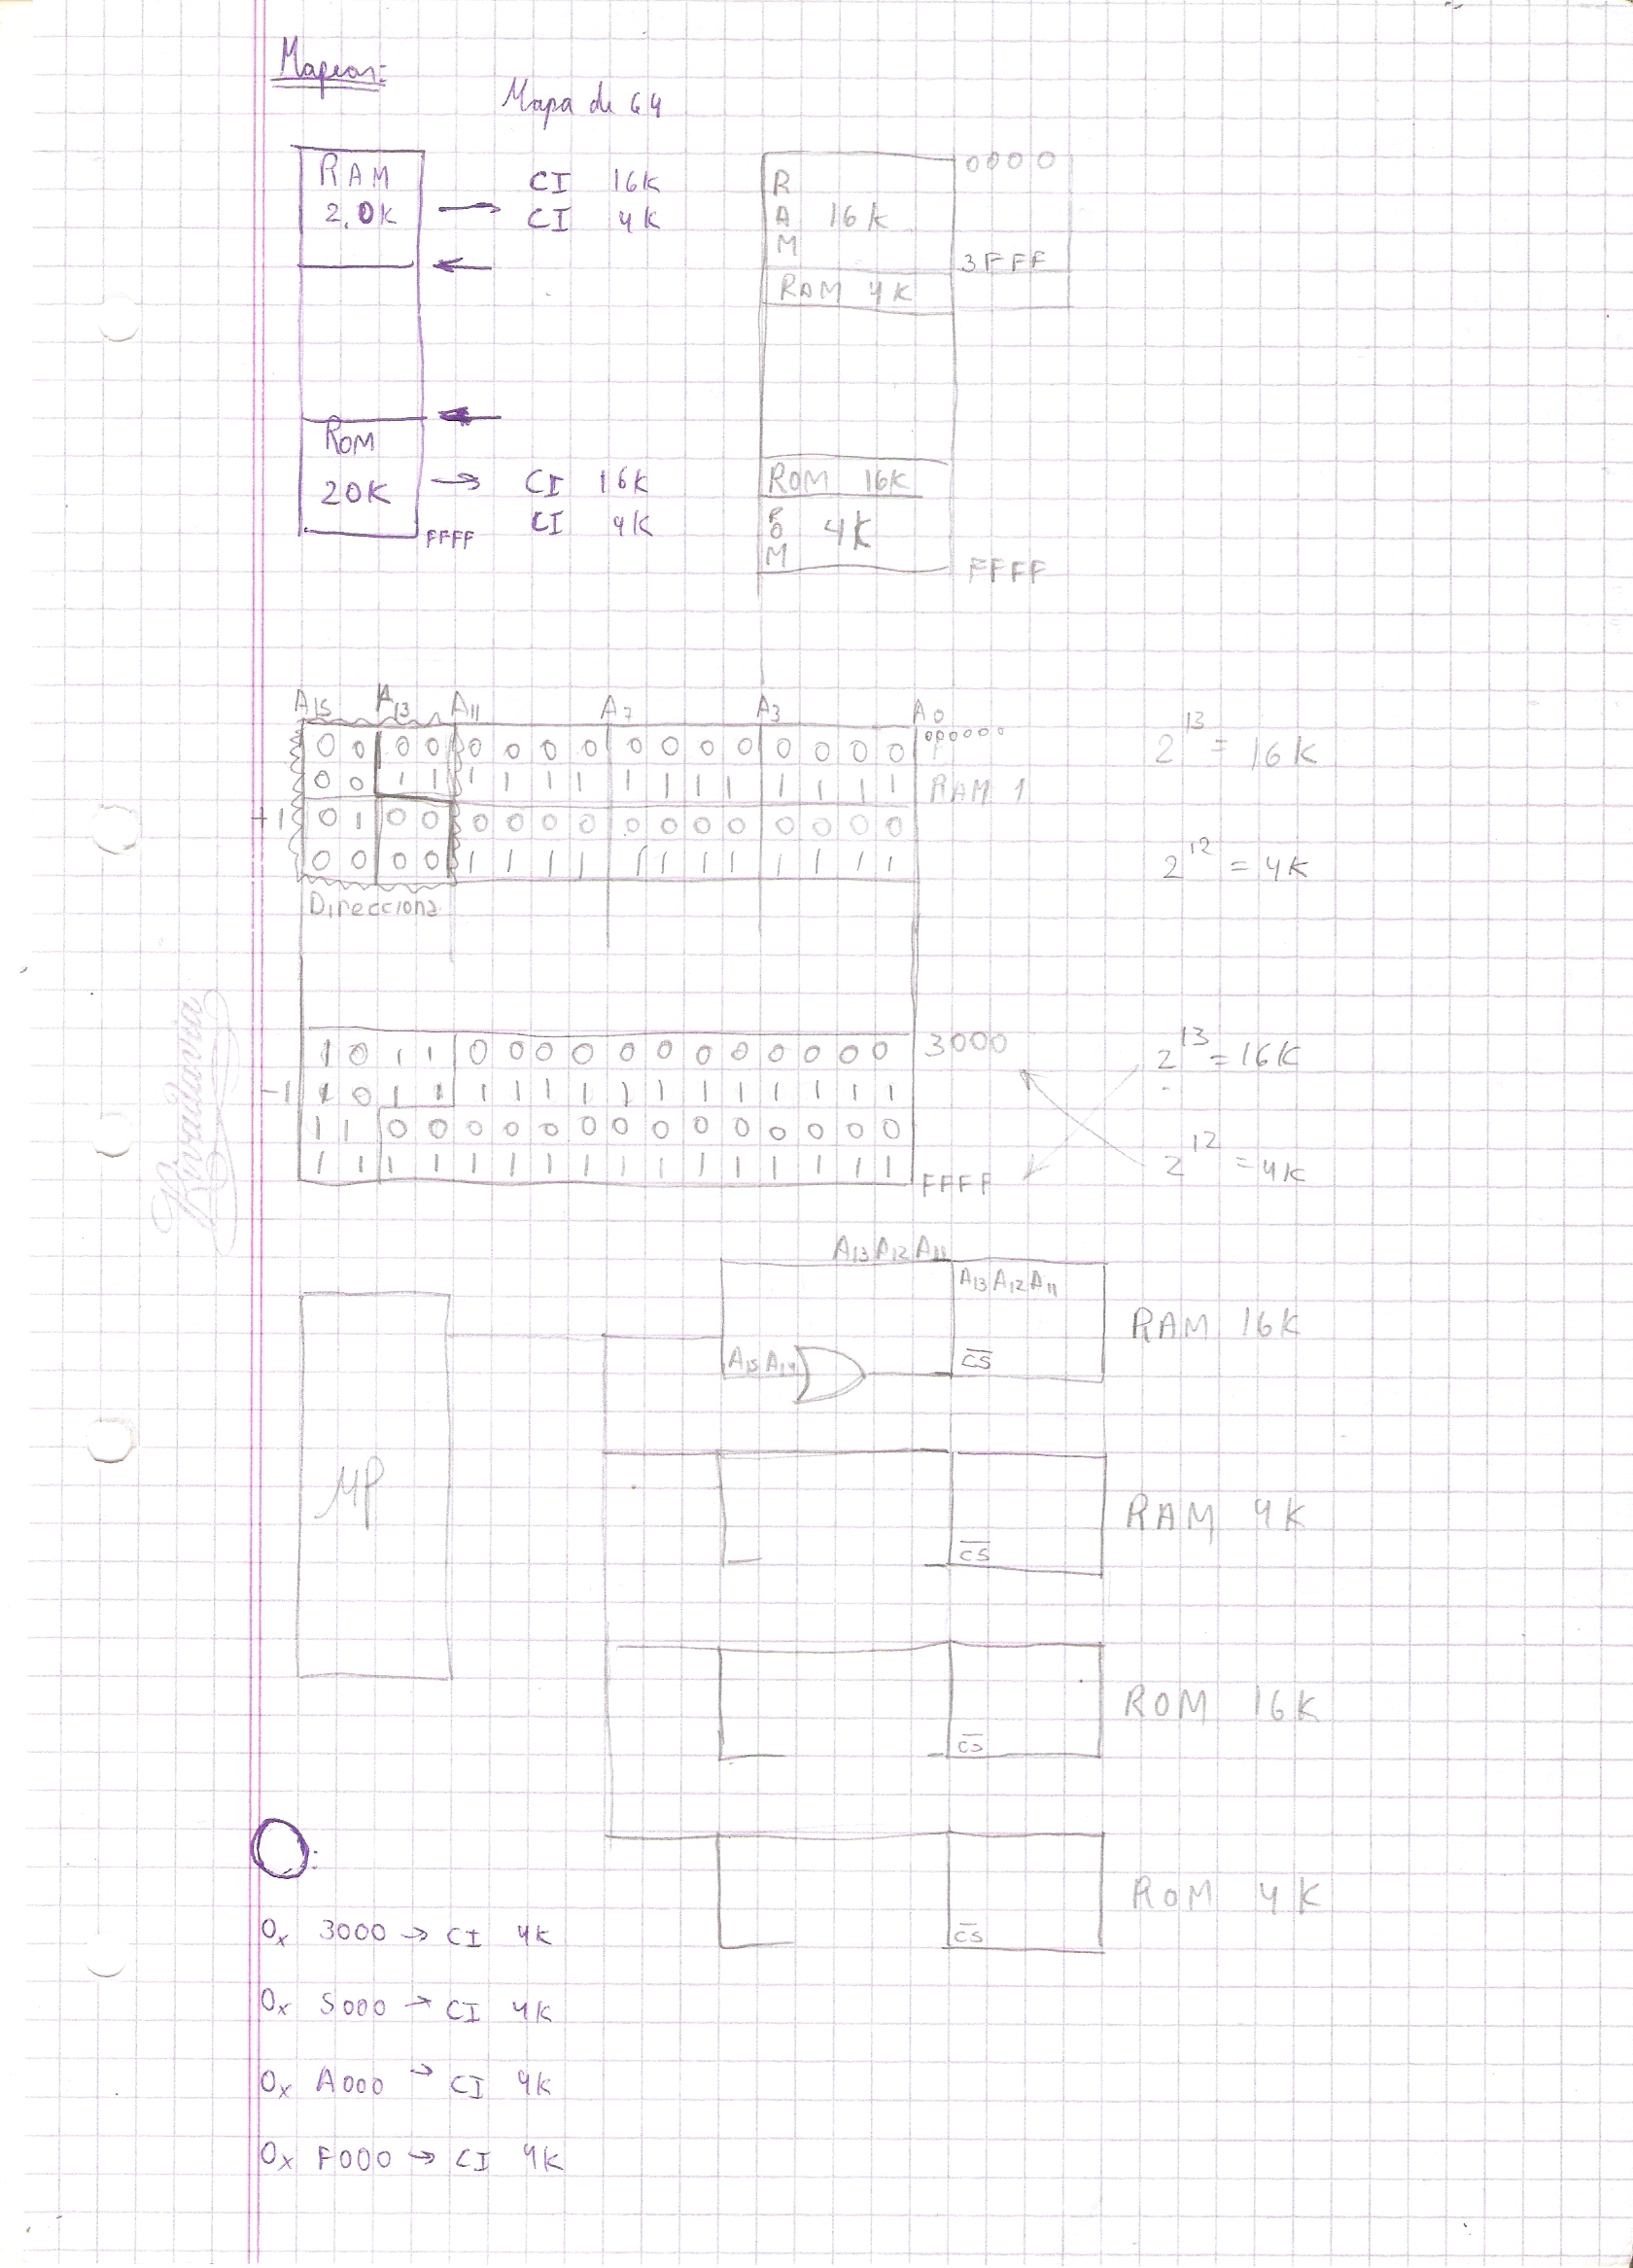 Mapear:
Mapa de 64
RAM
20K
CI 16K
CI 4K
ROM
20K
FFFF
CI 16K
CI 4K
RAM 16K
0000
3FFF
RAM 4K
ROM 16K
ROM 4K
FFFF
A15 A13 A11 A7 A3 A0
0 0 0 0 0 0 0 0 0 0 0 0 0 0 0 0 000000
0 0 1 1 1 1 1 1 1 1 1 1 1 1 1 1 RAM 1
+1 0 1 0 0 0 0 0 0 0 0 0 0 0 0 0 0
0 0 0 0 1 1 1 1 1 1 1 1 1 1 1 1
Direcciona
2^13 = 16K
2^12 = 4K
1 0 1 1 0 0 0 0 0 0 0 0 0 0 0 0 3000
-1 1 0 1 1 1 1 1 1 1 1 1 1 1 1 1 1
1 1 0 0 0 0 0 0 0 0 0 0 0 0 0 0
1 1 1 1 1 1 1 1 1 1 1 1 1 1 1 1 FFFF
2^13 = 16K
2^12 = 4K
Rivadavia
A13 A12 A11
A13 A12 A11
A15 A14
CS
RAM 16K
MP
CS
RAM 4K
CS
ROM 16K
CS
ROM 4K
0x 3000 → CI 4K
0x 5000 → CI 4K
0x A000 → CI 4K
0x F000 → CI 4K